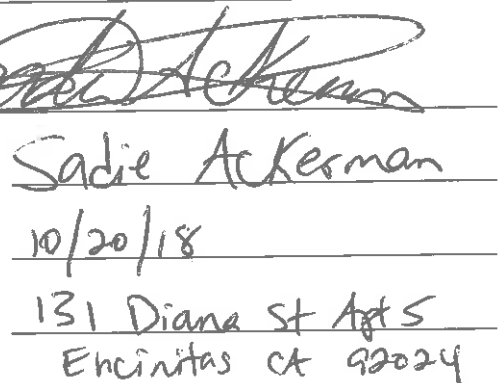 Sadie Ackerman
Sadie Ackerman
10/20/18
131 Diana St Apt 5
Encinitas CA 92024